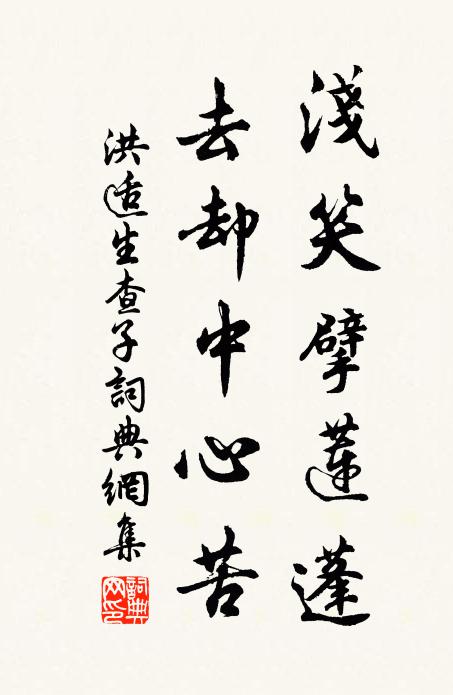 淺笑擘蓮蓬
去却中心苦
洪适生查子詞典網集
詞典網印